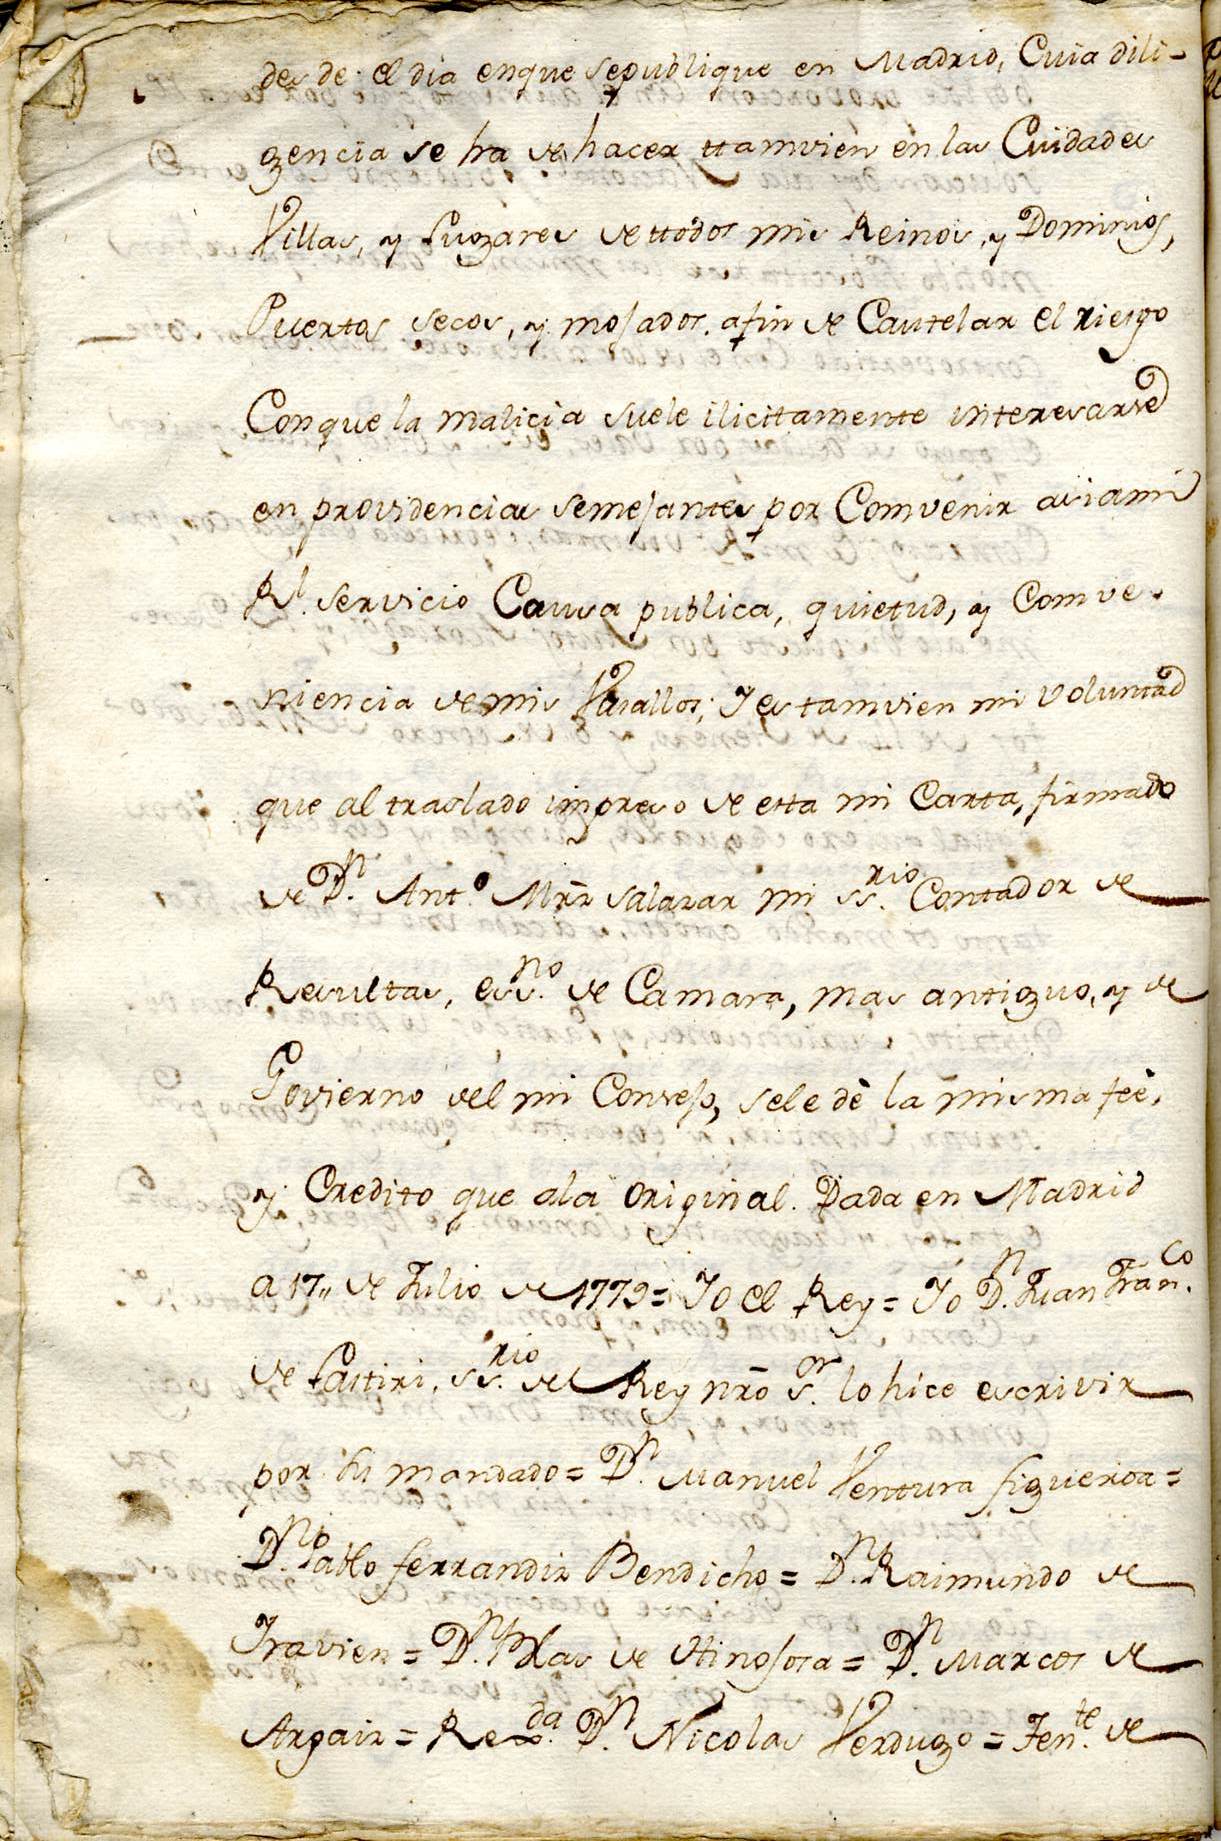 des de el dia enque sepublique en Madrid, Cuia dili-
gencia se ha de hacer ttamvien en las Cuidades
Villas, y Lugares de ttodos mis Reinos, y Dominios,
Puertos secos, y mojados, afin de Cautelar el riesgo
Conque la malicia suele ilicittamente interesarse
en providencias semejantes por Comvenir asiami
Rl. servicio Causa publica, quietud, y Comve-
niencia de mis Vasallos; Y es tamvien mi voluntad
que al traslado impreso de esta mi Carta, firmado
de Dn. Anto. Mrz̄ salazar mi ssrio. Contador de
Resultas, essno. de Camara, mas antiguo, y de
Govierno del mi Consejo, sele dè la misma feè,
y Credito que ala original. Dada en Madrid
a 17,, de Julio de 1779 = Yo el Rey = Yo Dn. Juan Franco.
de Lastiri, ssrio. del Rey nrō sor. lo hice escrivir
por su mandado = Dn. Manuel Ventura figueroa =
Dn. Pablo ferrandiz Bendicho = Dn. Raimundo de
Yravien = Dn. Blas de Hinojosa = Dn. Marcos de
Argaiz = Rexda. Dn. Nicolas Verdugo = Tente. de